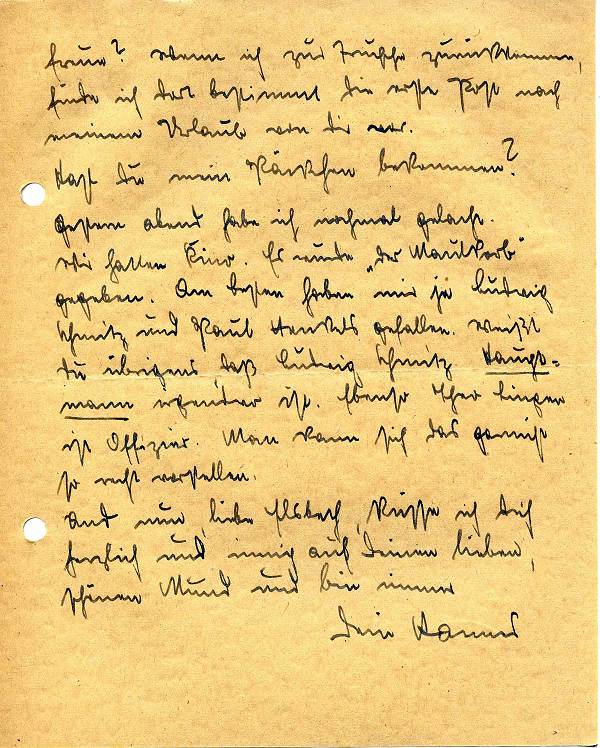 freue? Wenn ich zur Truppe zurückkomme,
finde ich dort bestimmt die erste Post nach
meinem Urlaub von Dir vor.
Hast Du mein Päckchen bekommen?
Gestern abend habe ich nochmal gelacht.
Wir hatten Kino. Es wurde „Der Maulkorb"
gegeben. Am besten haben mir ja Ludwig
Schmitz und Paul Henkels gefallen. Weißt
Du übrigens, daß Ludwig Schmitz Haupt=
mann irgendwo ist. Ebenso Theo Lingen
ist Offizier. Man kann sich das garnicht
so recht vorstellen.
Und nun, liebe Elsbeth, küsse ich Dich
herzlich und innig auf Deinen lieben,
schönen Mund und bin immer
Dein Hannes